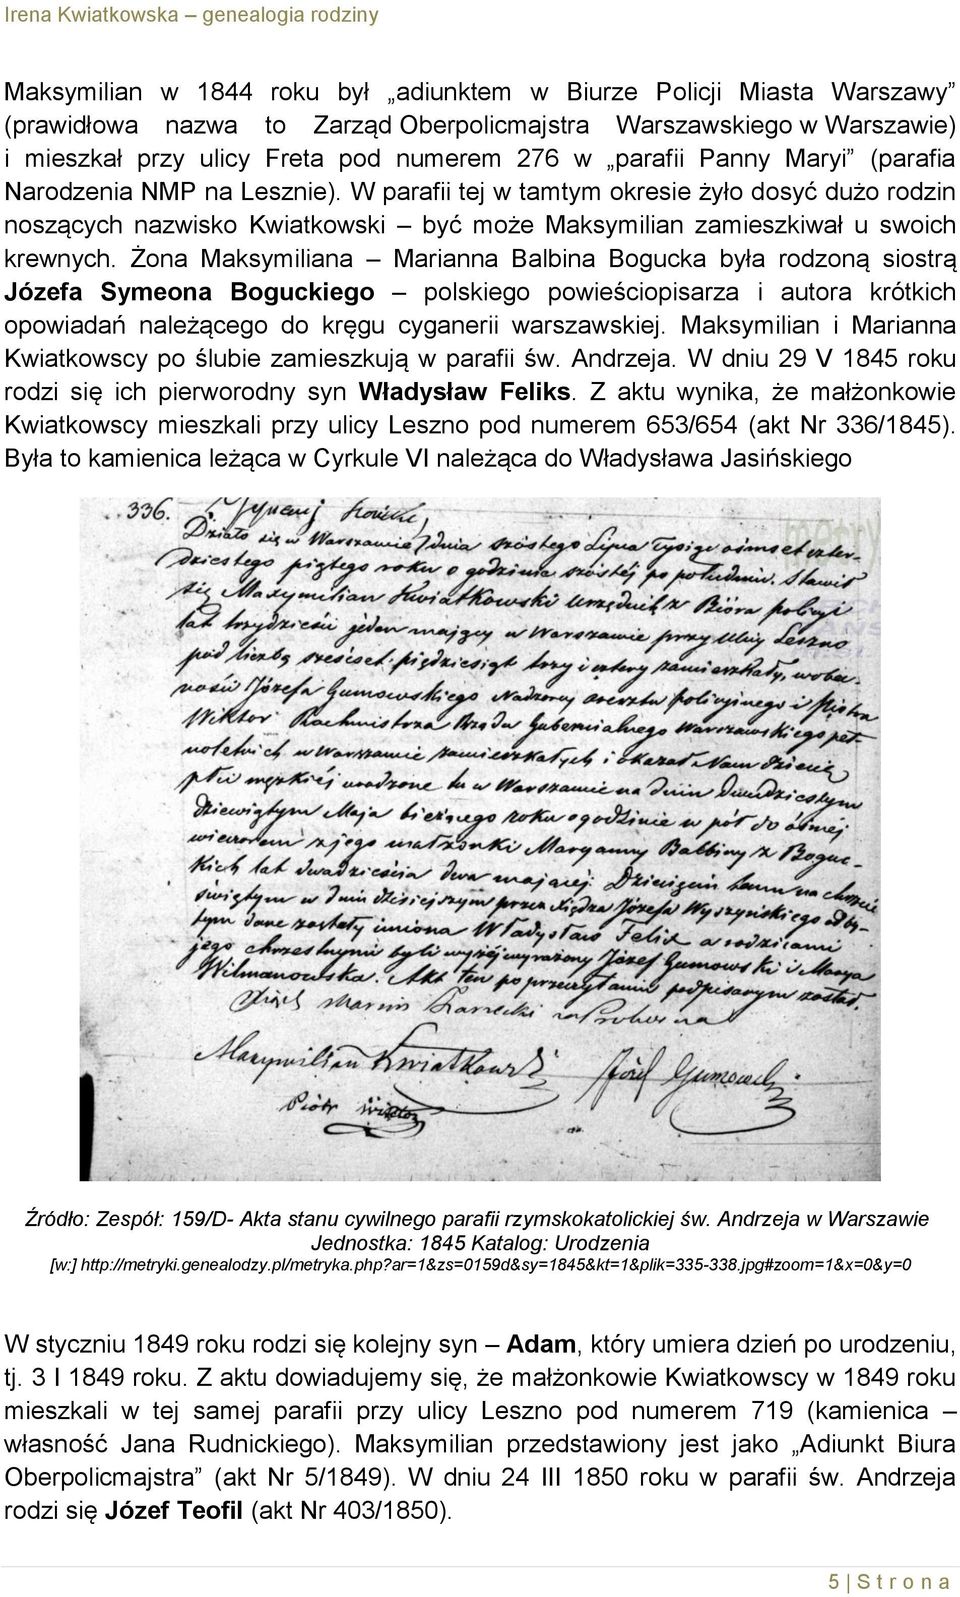 Irena Kwiatkowska – genealogia rodziny
Maksymilian w 1844 roku był „adiunktem w Biurze Policji Miasta Warszawy”
(prawidłowa nazwa to Zarząd Oberpolicmajstra Warszawskiego w Warszawie)
i mieszkał przy ulicy Freta pod numerem 276 w „parafii Panny Maryi” (parafia
Narodzenia NMP na Lesznie). W parafii tej w tamtym okresie żyło dosyć dużo rodzin
noszących nazwisko Kwiatkowski – być może Maksymilian zamieszkiwał u swoich
krewnych. Żona Maksymiliana – Marianna Balbina Bogucka była rodzoną siostrą
Józefa Symeona Boguckiego – polskiego powieściopisarza i autora krótkich
opowiadań należącego do kręgu cyganerii warszawskiej. Maksymilian i Marianna
Kwiatkowscy po ślubie zamieszkują w parafii św. Andrzeja. W dniu 29 V 1845 roku
rodzi się ich pierworodny syn Władysław Feliks. Z aktu wynika, że małżonkowie
Kwiatkowscy mieszkali przy ulicy Leszno pod numerem 653/654 (akt Nr 336/1845).
Była to kamienica leżąca w Cyrkule VI należąca do Władysława Jasińskiego
336.
Działo się w Warszawie dnia szóstego Lipca tysiąc ośmset czter-
dziestego piątego roku o godzinie szóstej po południu. Stawił
się Maxymilian Kwiatkowski Urzędnik z Bióra policyi
lat trzydzieści jeden mający w Warszawie przy Ulicy Leszno
pod liczbą sześćset pięćdziesiąt trzy i cztery zamieszkały, w obec-
ności Józefa Gumowskiego Nadzorcy aresztu policyjnego i Piotra
Wiktor Rachmistrza Rządu Gubernialnego Warszawskiego peł-
noletnich w Warszawie zamieszkałych i okazał Nam dziecię
płci męzkiéj urodzone tu w Warszawie na dniu dwudziestym
dziewiątym Maja bieżącego roku o godzinie w pół do ósmej
wieczorem z jego małżonki Maryanny Balbiny z Boguc-
kich lat dwadzieścia dwa mającej. Dziecięciu temu na chrzcie
świętym w dniu dzisiejszym przez Xiędza Józefa Wyszyńskiego odby-
tym dane zostały imiona Władysław Felix a rodzicami
jego chrzestnymi byli wyżéj wyrażony Józef Gumowski i Marya
Wilmanowska. Akt ten po przeczytaniu podpisanym został.
Maxymilian Kwiatkowski
Józef Gumowski
Piotr
Źródło: Zespół: 159/D- Akta stanu cywilnego parafii rzymskokatolickiej św. Andrzeja w Warszawie
Jednostka: 1845 Katalog: Urodzenia
[w:] http://metryki.genealodzy.pl/metryka.php?ar=1&zs=0159d&sy=1845&kt=1&plik=335-338.jpg#zoom=1&x=0&y=0
W styczniu 1849 roku rodzi się kolejny syn – Adam, który umiera dzień po urodzeniu,
tj. 3 I 1849 roku. Z aktu dowiadujemy się, że małżonkowie Kwiatkowscy w 1849 roku
mieszkali w tej samej parafii przy ulicy Leszno pod numerem 719 (kamienica –
własność Jana Rudnickiego). Maksymilian przedstawiony jest jako „Adiunkt Biura
Oberpolicmajstra” (akt Nr 5/1849). W dniu 24 III 1850 roku w parafii św. Andrzeja
rodzi się Józef Teofil (akt Nr 403/1850).
5 | S t r o n a